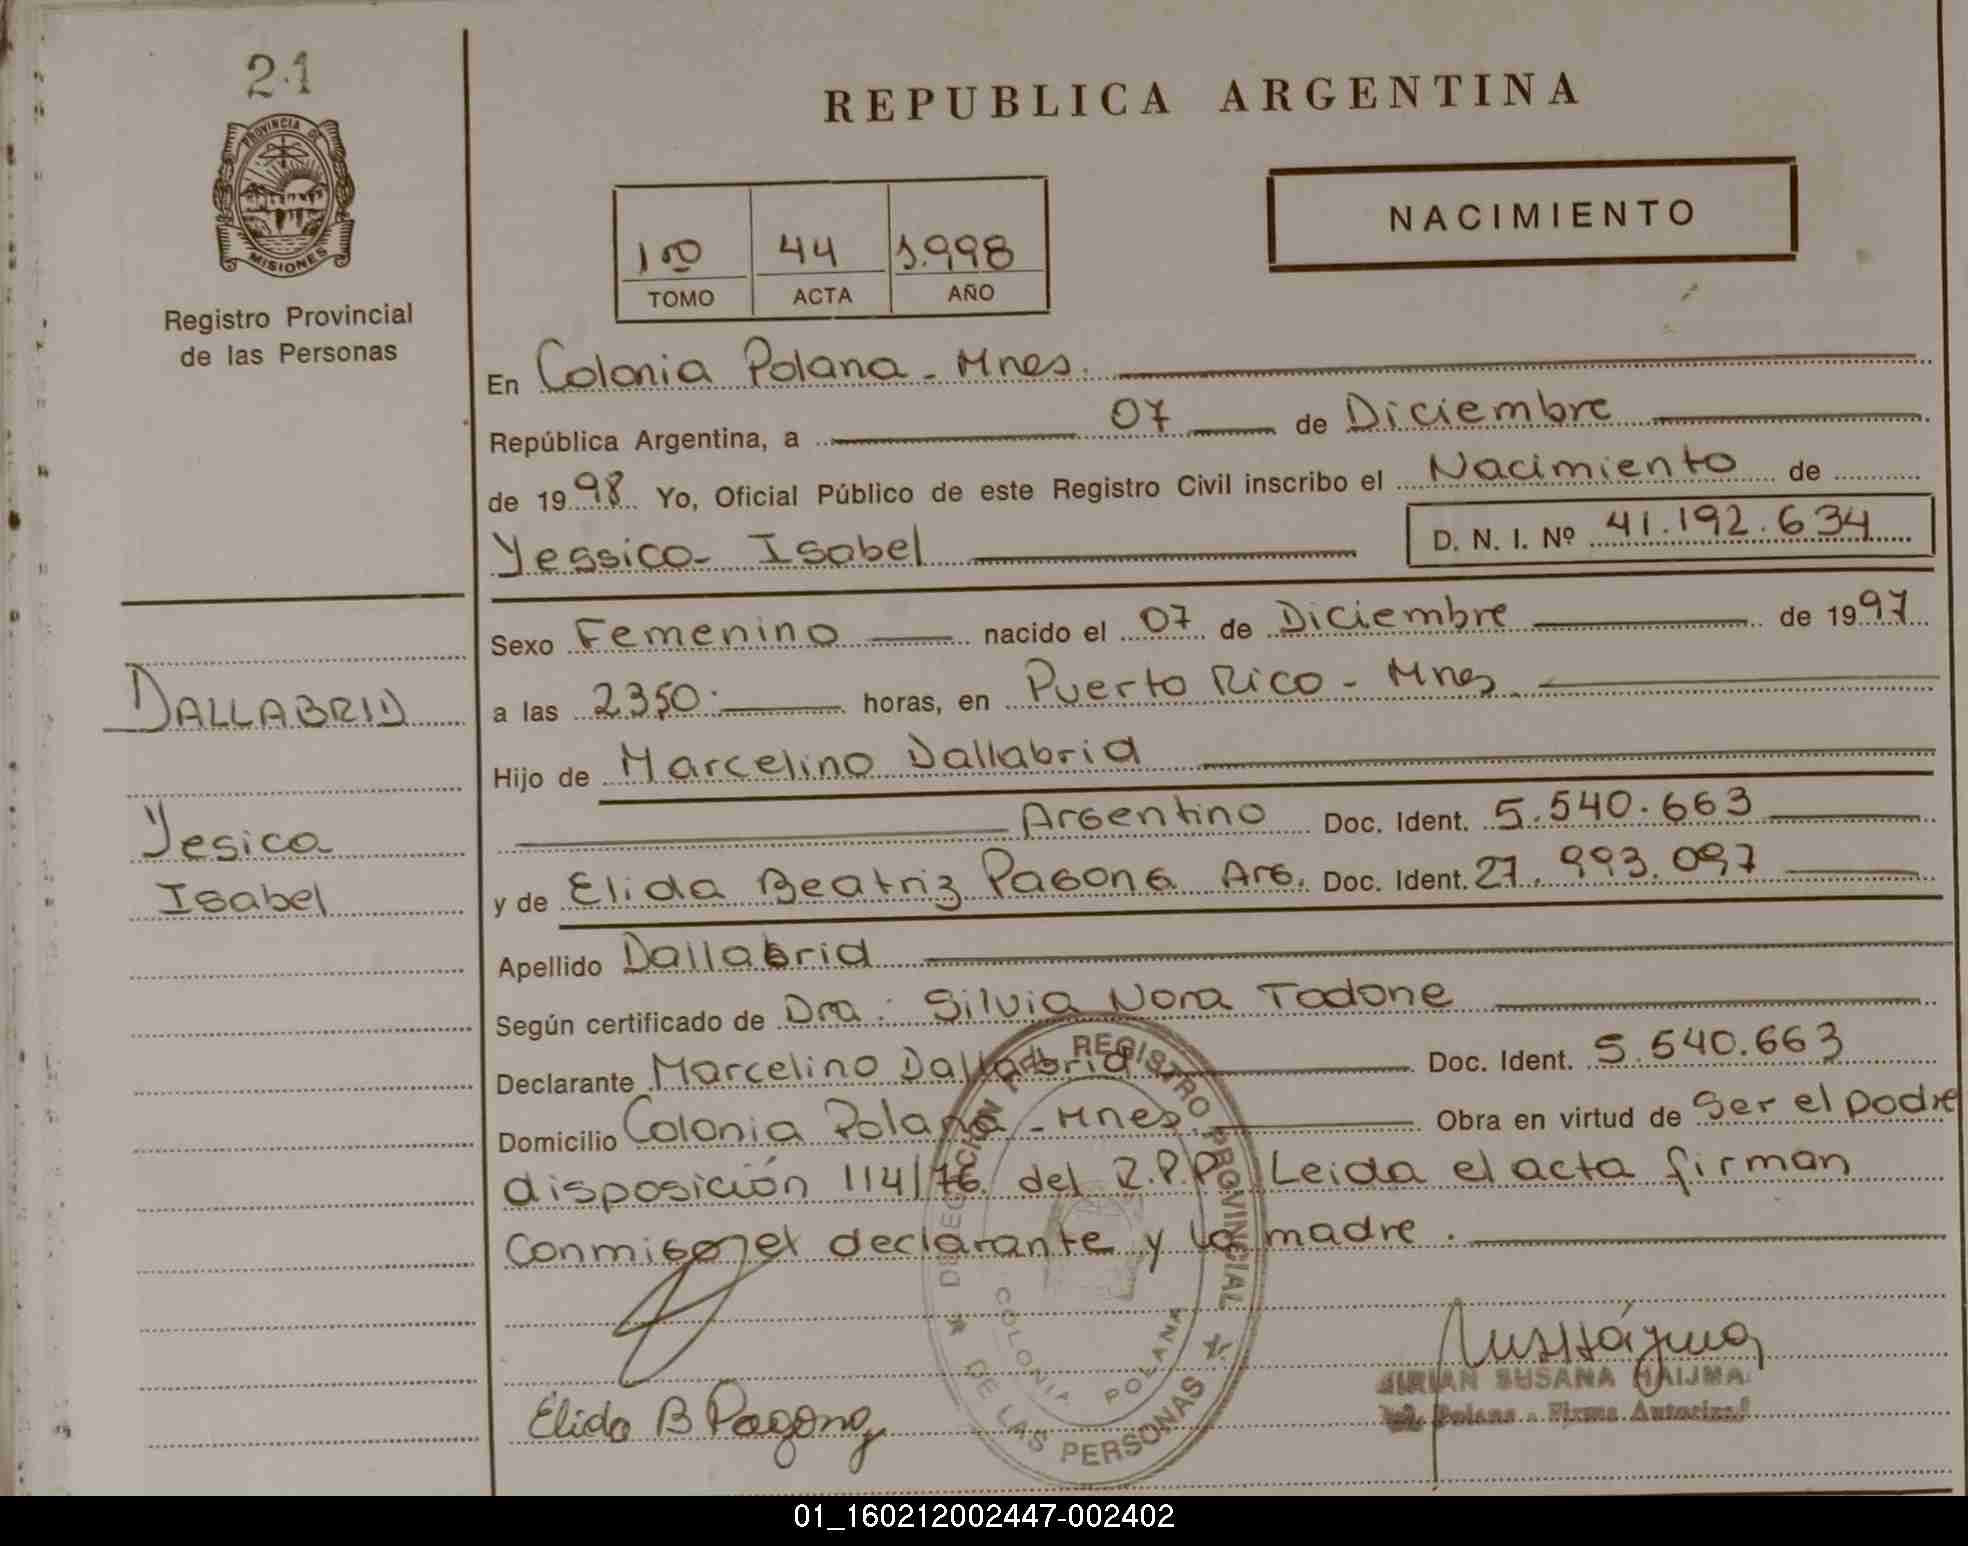 21
PROVINCIA DE
MISIONES
Registro Provincial
de las Personas
REPUBLICA ARGENTINA
NACIMIENTO
1º 44 1.998
TOMO ACTA AÑO
En Colonia Polana - Mnes.
República Argentina, a 07 de Diciembre
de 1998 Yo, Oficial Público de este Registro Civil inscribo el Nacimiento de
Yessica Isabel D. N. I. Nº 41.192.634
Sexo Femenino nacido el 07 de Diciembre de 1997
a las 2350 horas, en Puerto Rico - Mnes
Hijo de Marcelino Dallabrid
Argentino Doc. Ident. 5.540.663
y de Elida Beatriz Pagong Arg. Doc. Ident. 27.993.097
Apellido Dallabrid
Según certificado de Dra: Silvia Nora Todone
Declarante Marcelino Dallabrid Doc. Ident. 5.540.663
Domicilio Colonia Polana - Mnes. Obra en virtud de Ser el padre
disposición 114/76. del R.P.P. Leida el acta firman
conmigo el declarante y la madre.
DALLABRID
Yesica
Isabel
DIRECCION DEL REGISTRO PROVINCIAL
DE LAS PERSONAS
COLONIA POLANA
Elida B Pagong
MIRIAN SUSANA HAIJMA
Polana - Firma Autoriza
01_160212002447-002402